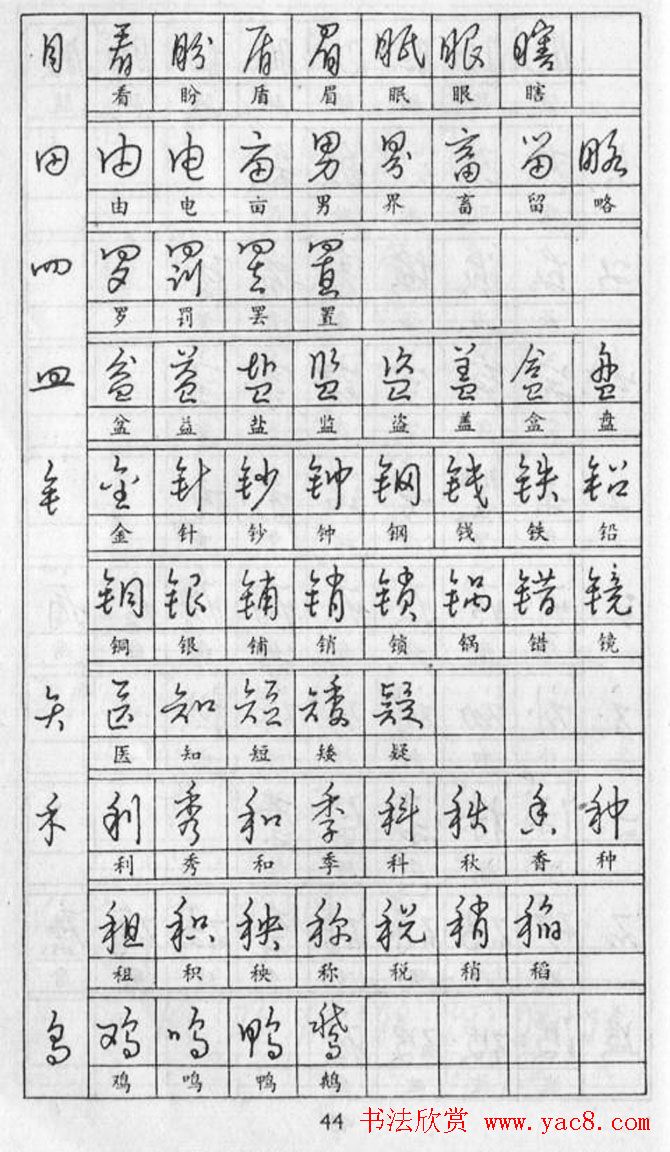 目 看 盼 盾 眉 眠 眼 瞎
看 盼 盾 眉 眠 眼 瞎
田 由 电 亩 男 界 畜 留 略
由 电 亩 男 界 畜 留 略
罒 罗 罚 罢 置
罗 罚 罢 置
皿 盆 益 盐 监 盗 盖 盒 盘
盆 益 盐 监 盗 盖 盒 盘
钅 金 针 钞 钟 钢 钱 铁 铅
金 针 钞 钟 钢 钱 铁 铅
铜 银 铺 销 锁 锅 错 镜
铜 银 铺 销 锁 锅 错 镜
矢 医 知 短 矮 疑
医 知 短 矮 疑
禾 利 秀 和 季 科 秩 香 种
利 秀 和 季 科 秋 香 种
租 积 秧 称 税 稍 稻
租 积 秧 称 税 稍 稻
鸟 鸡 鸣 鸭 鹅
鸡 鸣 鸭 鹅
44 书法欣赏 www.yac8.com